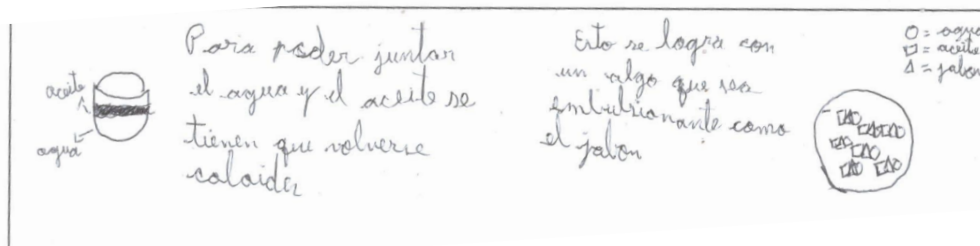 aceite
agua
Para poder juntar
el agua y el aceite se
tienen que volverse
coloida
Esto se logra con
un algo que sea
embulsionante como
el jabon
O = agua
□ = aceite
Δ = jabon